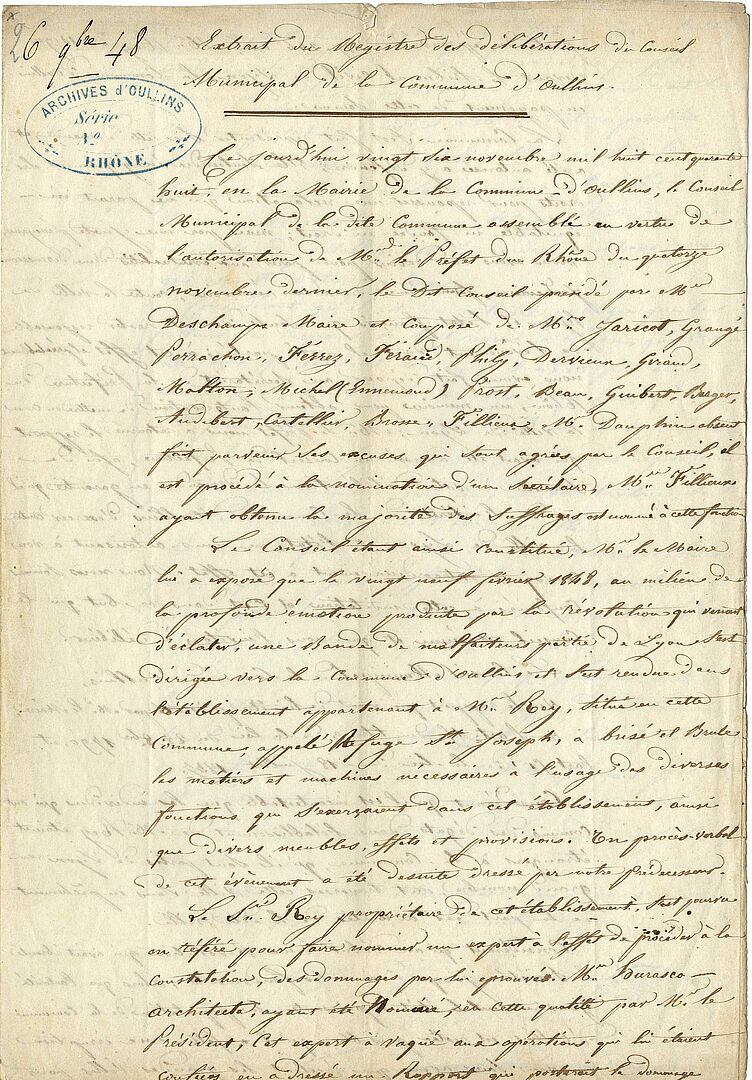 26 9bre 48
Extrait du Registre des délibérations du Conseil
Municipal de la Commune d'Oullins.
ARCHIVES d'OULLINS
Série
N°
RHÔNE
Ce jourd'hui vingt six novembre mil huit cent quarante
huit, en la Mairie de la Commune d'Oullins, le Conseil
Municipal de la dite Commune assemblé en vertu de
l'autorisation de Mr le Préfet du Rhône du quatorze
novembre dernier, le Dit Conseil présidé par Mr
Deschamps Maire et Composé de Mrs Jaricot, Grangé
Perrachon, Ferrez, Féraud, Phily, Dervieux, Giraud,
Matton, Michel (Ennemond) Prost, Beau, Guibert, Berger,
Audibert, Cartellier, Brosse, Fillieux, Mr Dauphin absent
fait parvenir ses excuses qui sont agréés par le Conseil, il
est procédé à la nomination d'un Secrétaire, Mr Fillieux
ayant obtenu la majorité des Suffrages est nommé à cette fonction
Le Conseil étant ainsi Constitué, Mr le Maire
lui a exposé que le vingt neuf février 1848, au milieu de
la profonde émotion produite par la révolution qui venait
d'éclater, une Bande de malfaiteurs partie de Lyon s'est
dirigée vers la Commune d'Oullins et s'est rendue dans
l'établissement appartenant à Mr Rey, situé en cette
Commune, appelé Refuge St Joseph, a brisé et Brulé
les métiers et machines nécessaires à l'usage des diverses
fonctions qui s'exerçaient dans cet établissement, ainsi
que divers meubles, effets et provisions. Un procès-verbal
de cet évènement a été dressé par notre Prédécesseur.
Le Sr Rey propriétaire de cet établissement, s'est pourvu
en référé pour faire nommer un expert à l'effet de procéder à la
Constatation, des dommages par lui éprouvés. Mr
architecte, ayant été Nommé, en cette qualité par Mr le
Président, Cet expert a vaqué aux opérations qui lui étaient
confiées en a dressé un Rapport qui portait le dommage